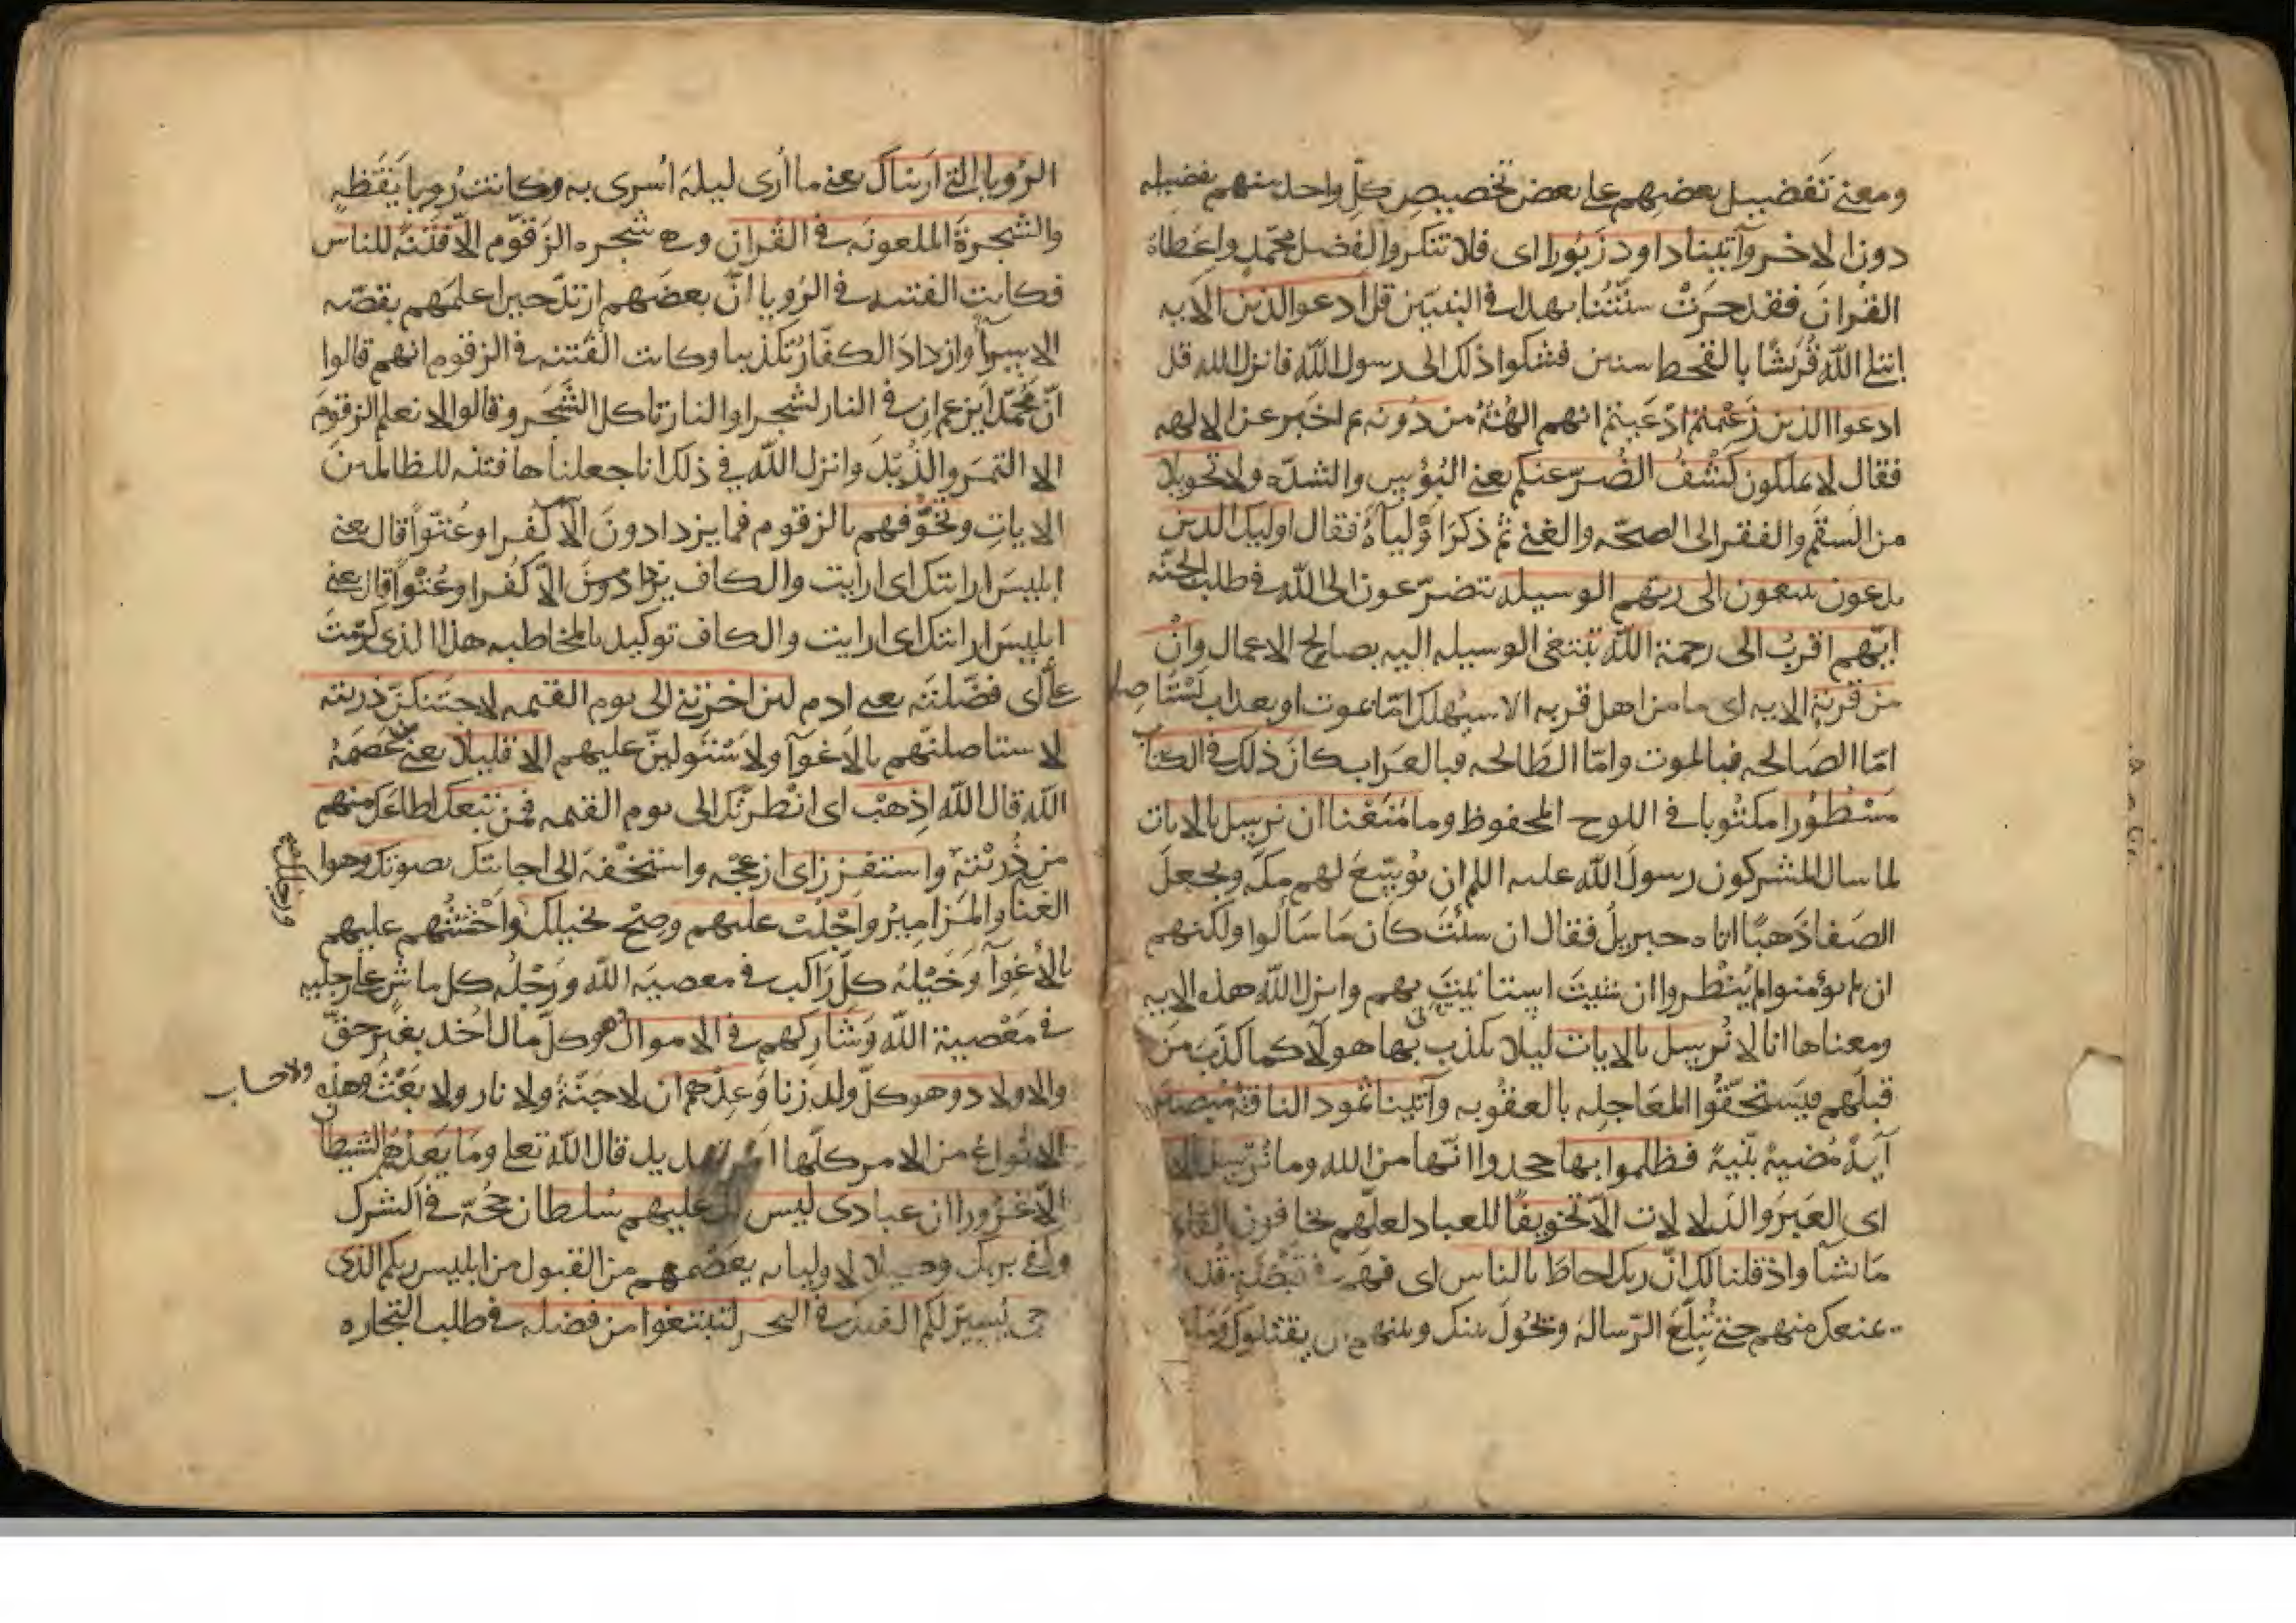 ومعنى تفضيل بعضهم على بعض تخصيص كل واحد منهم بفضيله
دون الاخر وآتينا داود زبورا اى فلا تنكروا لفضل محمد واعطاه
القرآن فقد جرت سنتنا بهذا في النبيين قل ادعوا الذين الآيه
ابتلى الله قريشا بالقحط سنين فشكوا ذلك الى رسول الله فانزل الله قل
ادعوا الذين زعمتم ادعيتم انهم الهة من دونه ثم اخبر عن الالهه
فقال لا يملكون كشف الضر عنكم يعني البؤس والشده ولا تحويلا
من السقم والفقر الى الصحه والغنى ثم ذكر اولياه فقال اوليك الذين
يدعون يبتغون الى ربهم الوسيله يتضرعون الى الله في طلب الجنه
ايهم اقرب الى رحمة الله يبتغي الوسيله اليه بصالح الاعمال وان
من قرية الايه اى ما من اهل قريه الا سنهلك اما بموت او بعذاب يستاصل
اما الصالحه فبالموت واما الطالحه فبالعذاب كان ذلك في الكتاب
مسطورا مكتوبا في اللوح المحفوظ وما منعنا ان نرسل بالايات
لما سال المشركون رسول الله عليه السلم ان يوسع لهم مكه ويجعل
الصفا ذهبا اتاه جبريل فقال ان شئت كان ما سالوا ولكنهم
ان لم يؤمنوا لم ينظروا وان شئت استانيت بهم وانزل الله هذه الايه
ومعناها انا لا نرسل بالايات ليلا يكذب بها هولآ كما كذب من
قبلهم فيستحقوا المعاجله بالعقوبه وآتينا ثمود الناقة مبصرة
آية مضيه بينة فظلموا بها جحدوا انها من الله وما نرسل بالايات
اى العبر والدلالات الا تخويفا للعباد لعلهم يخافون القادر
ما شا واذ قلنا لك ان ربك احاط بالناس اى فهم في قبضته وقدرته
يمنعك منهم حتى تبلغ الرسالة ويحول بينك وبينهم ان يقتلوك وما
الرؤيا التي اريناك يعني ما اُرى ليلة اُسرى به وكانت رؤيا يقظه
والشجرة الملعونه في القرآن وهي شجره الزقوم الا فتنة للناس
فكانت الفتنه في الرؤيا ان بعضهم ارتد حين اعلمهم بقصه
الاسرآ وازداد الكفار تكذيبا وكانت الفتنه في الزقوم انهم قالوا
ان محمدا يزعم ان في النار لشجرا والنار تاكل الشجر وقالوا لا نعلم الزقوم
الا التمر والزبد وانزل الله في ذلك انا جعلناها فتنه للظالمين
الايات ونخوفهم بالزقوم فما يزدادون الا كفرا وعتوا قال يعني
ابليس ارايتك اى ارايت والكاف يزدادون الا كفرا وعتوا قال يعني
ابليس ارايتك اى ارايت والكاف توكيد بالمخاطبه هذا الذى كرمت
على اى فضلته يعني ادم لئن اخرتني الى يوم القيمه لاحتنكن ذريته
لاستاصلنهم بالاغوآ ولاستولين عليهم الا قليلا يعني من عصمه
الله قال الله اذهب اى انظرتك الى يوم القيمه فمن تبعك اطاعك منهم
من ذريته واستفزز اى ازعجه واستخفه الى اجابتك بصوتك وهو
الغنا والمزامير واجلب عليهم وصح بخيلك ورجلك واحثثهم عليهم
بالاغوآ وخيله كل راكب في معصية الله ورجله كل ماش على رجليه
في معصية الله وشاركهم في الاموال هو كل مال اُخذ بغير حق
والاولاد وهو كل ولد زنا وعدهم ان لا جنة ولا نار ولا بعث ولا حساب وهذه
الانواع من الامر كلها امر تهديد قال الله تعلى وما يعدهم الشيطان
الا غرورا ان عبادى ليس لك عليهم سلطان حجة في الشرك
وكفى بربك وكيلا لاوليايه يعصمهم من القبول من ابليس ربكم الذى
يزجى يسير لكم الفلك في البحر لتبتغوا من فضله في طلب التجاره